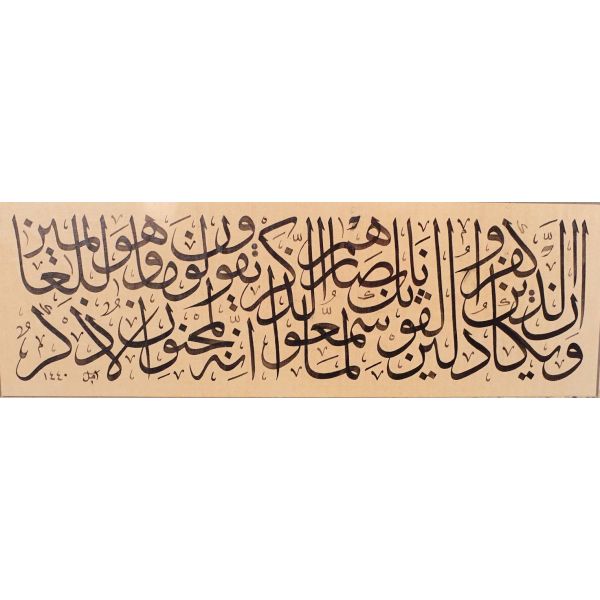 وان يكاد الذين كفروا ليزلقونك بابصارهم لما سمعوا الذكر ويقولون انه لمجنون وما هو الا ذكر للعالمين
١٤٤٠